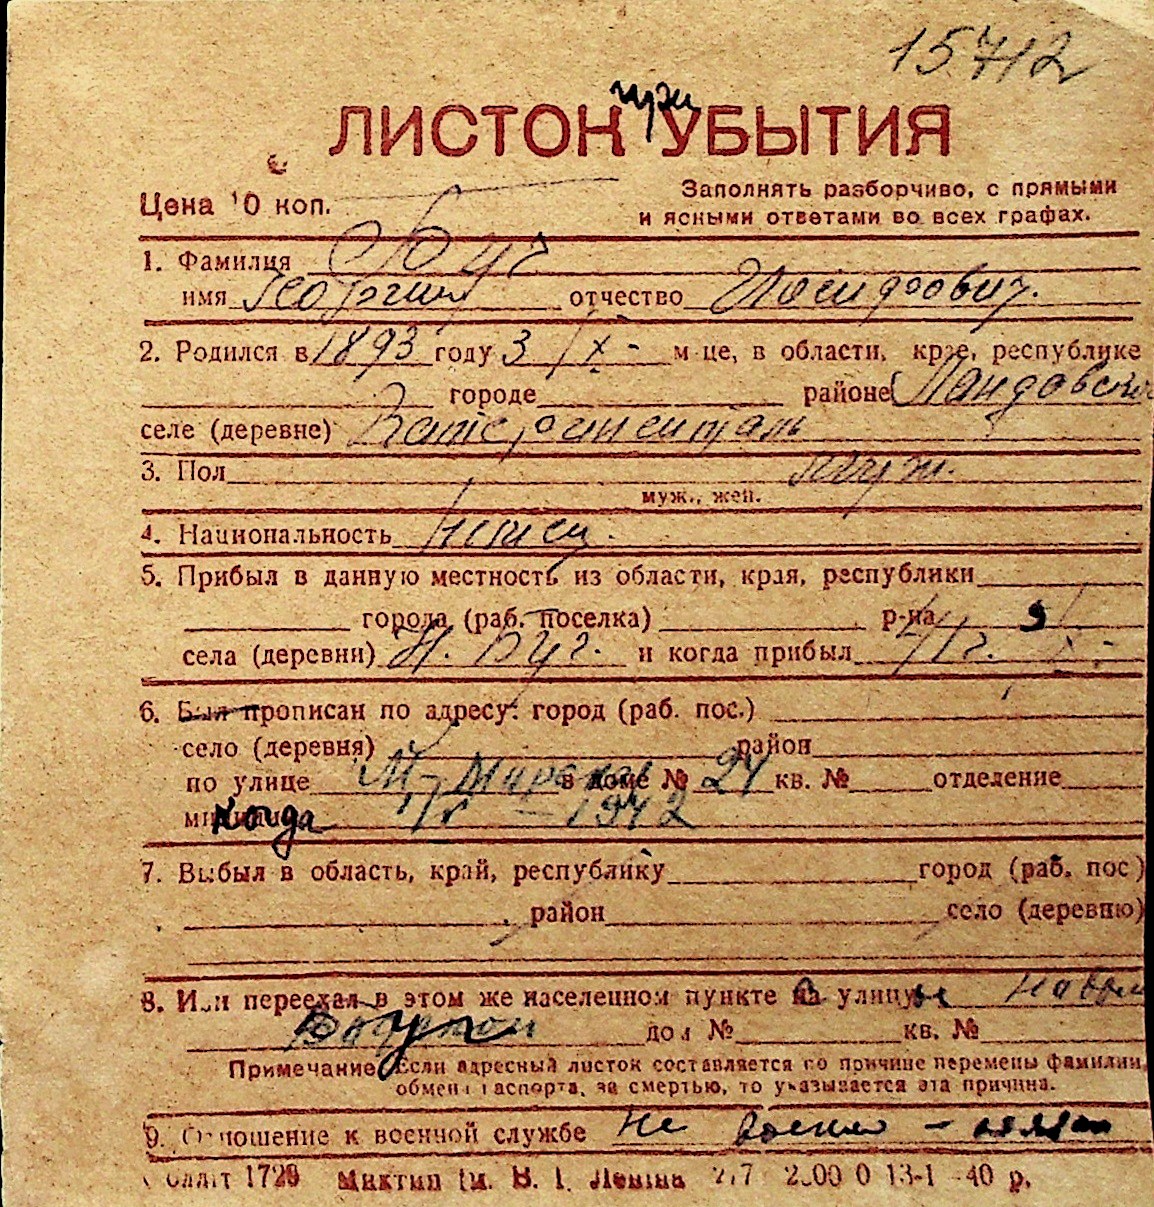 15712
при
ЛИСТОК УБЫТИЯ
Цена 10 коп.
Заполнять разборчиво, с прямыми
и ясными ответами во всех графах.
1. Фамилия Буч
имя Георгий отчество Иосифович.
2. Родился в 1893 году 3/X- м-це, в области, крае, республике
городе районе Ландовско
селе (деревне) Катеринентталь
3. Пол муж.
муж., жен.
4. Национальность Немец.
5. Прибыл в данную местность из области, края, республики
города (раб. поселка) р-на
села (деревни) Н. Буг. и когда прибыл 41 г.
6. Был прописан по адресу: город (раб. пос.)
село (деревня) район
по улице в доме № 24 кв. № отделение
милиции Когда 1942
7. Выбыл в область, край, республику город (раб. пос.)
район село (деревню)
8. Или переехал в этом же населенном пункте на улицу
дом № кв. №
Примечание. Если адресный листок составляется по причине перемены фамилии,
обмена паспорта, за смертью, то указывается эта причина.
9. Отношение к военной службе Не военно-обязан
1729 им. В. И. Ленина 2.00 0 13-1-40 р.